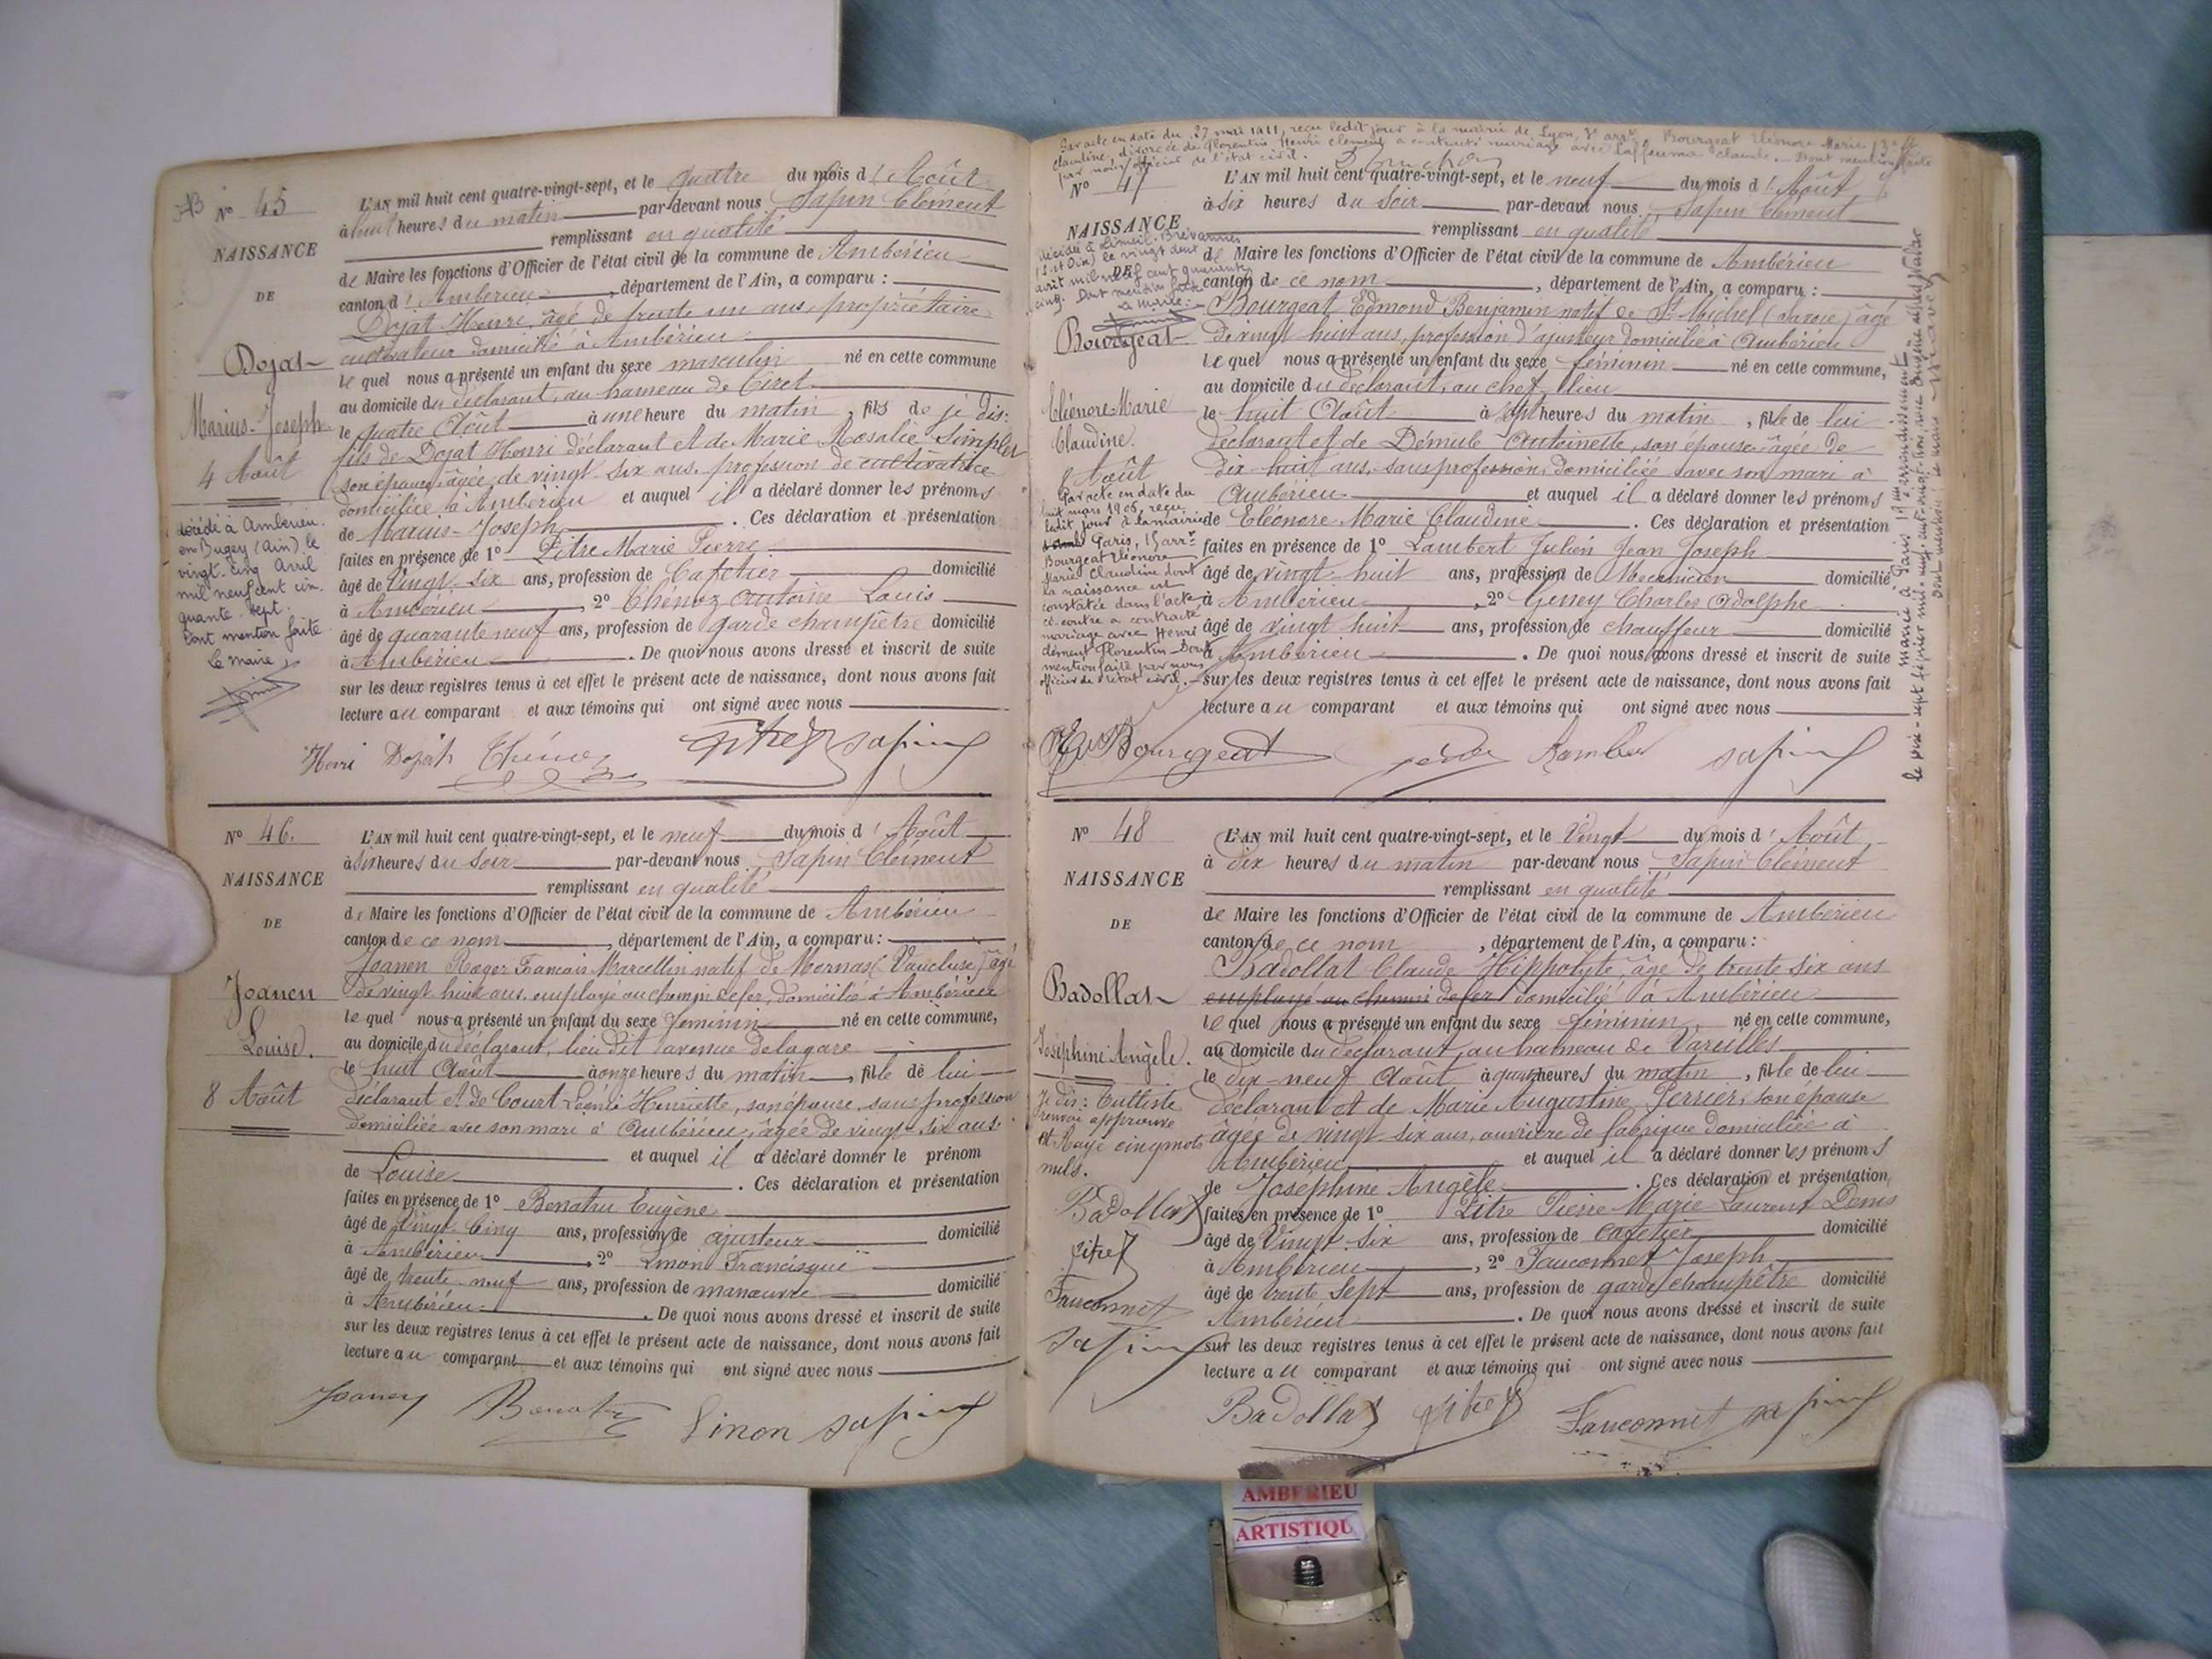 N° 45
NAISSANCE
DE
Dojat
Marius-Joseph
4 Août
décédé à Ambérieu
en Bugey (Ain) le
vingt-cinq Avril
mil neuf cent cin-
quante-sept.
Dont mention faite
Le maire,
L'AN mil huit cent quatre-vingt-sept, et le quatre du mois d'Août
à huit heures du matin par-devant nous Sapin Clément
remplissant en qualité
de Maire les fonctions d'Officier de l'état civil de la commune de Ambérieu
canton d'Ambérieu, département de l'Ain, a comparu :
Dojat Henri, âgé de trente un ans, propriétaire
cultivateur domicilié à Ambérieu
le quel nous a présenté un enfant du sexe masculin né en cette commune
au domicile du déclarant, au hameau de Tiret
le quatre Août à une heure du matin, fils de je dis:
fils de Dojat Henri déclarant et de Marie Rosalie Simplex
son épouse, âgée de vingt six ans, profession de cultivatrice
domiciliée à Ambérieu et auquel il a déclaré donner les prénoms
de Marius-Joseph. Ces déclaration et présentation
faites en présence de 1° Pitre Marie Pierre
âgé de vingt-six ans, profession de Cafetier domicilié
à Ambérieu, 2° Thénoz Antoine Louis
âgé de quarante neuf ans, profession de garde champêtre domicilié
à Ambérieu. De quoi nous avons dressé et inscrit de suite
sur les deux registres tenus à cet effet le présent acte de naissance, dont nous avons fait
lecture au comparant et aux témoins qui ont signé avec nous
Henri Dojat Thénoz Pitre Sapin
N° 46.
NAISSANCE
DE
Joanen
Louise.
8 Août
L'AN mil huit cent quatre-vingt-sept, et le neuf du mois d'Août
à six heures du soir par-devant nous Sapin Clément
remplissant en qualité
de Maire les fonctions d'Officier de l'état civil de la commune de Ambérieu
canton de ce nom, département de l'Ain, a comparu :
Joanen Roger Francois Marcellin natif de Mornas (Vaucluse) âgé
de vingt huit ans, employé au chemin de fer, domicilié à Ambérieu
le quel nous a présenté un enfant du sexe féminin né en cette commune,
au domicile du déclarant, lieu dit avenue de la gare
le huit Août à onze heures du matin, fille de lui
déclarant et de Court Léonie Henriette, son épouse, sans profession
domiciliée avec son mari à Ambérieu, âgée de vingt-six ans
et auquel il a déclaré donner le prénom
de Louise. Ces déclaration et présentation
faites en présence de 1° Benatru Eugène
âgé de vingt-cinq ans, profession de ajusteur domicilié
à Ambérieu, 2° Linon Francisque
âgé de trente-neuf ans, profession de manœuvre domicilié
à Ambérieu. De quoi nous avons dressé et inscrit de suite
sur les deux registres tenus à cet effet le présent acte de naissance, dont nous avons fait
lecture au comparant et aux témoins qui ont signé avec nous
Joanen Benatru Linon Sapin
Par acte en date du 27 mai 1911, reçu ledit jour à la mairie de Lyon, 3e arrt, Bourgeat Eléonore Marie
Claudine, divorcée de Florentin Henri Clément a contracté mariage avec Laffeuma Claude. Dont mention faite
par nous, officier de l'état civil.
N° 47
NAISSANCE
DE
décédée à Limeil-Brévannes
(S. et Oise) le vingt deux
avril mil neuf cent quarante
cinq. Dont mention faite
Le maire:
Bourgeat
Eléonore Marie
Claudine.
8 Août
Par acte en date du
huit mars 1906, reçu
ledit jour à la mairie de
Paris, 15 arrt
Bourgeat Eléonore
Marie Claudine dont
la naissance est
constatée dans l'acte
ci-contre a contracté
mariage avec Henri
Clément Florentin Dont
mention faite par nous
officier de l'état civil.
L'AN mil huit cent quatre-vingt-sept, et le neuf du mois d'Août
à six heures du soir par-devant nous Sapin Clément
remplissant en qualité
de Maire les fonctions d'Officier de l'état civil de la commune de Ambérieu
canton de ce nom, département de l'Ain, a comparu :
Bourgeat Edmond Benjamin natif de St Michel (Savoie) âgé
de vingt huit ans, profession d'ajusteur domicilié à Ambérieu
le quel nous a présenté un enfant du sexe féminin né en cette commune,
au domicile du déclarant, au chef lieu
le huit Août à sept heures du matin, fille de lui
déclarant et de Démule Antoinette, son épouse, âgée de
dix-huit ans, sans profession, domiciliée avec son mari à
Ambérieu et auquel il a déclaré donner les prénoms
de Eléonore Marie Claudine. Ces déclaration et présentation
faites en présence de 1° Lambert Julien Jean Joseph
âgé de vingt-huit ans, profession de Mécanicien domicilié
à Ambérieu, 2° Geney Charles Adolphe
âgé de vingt huit ans, profession de chauffeur domicilié
à Ambérieu. De quoi nous avons dressé et inscrit de suite
sur les deux registres tenus à cet effet le présent acte de naissance, dont nous avons fait
lecture au comparant et aux témoins qui ont signé avec nous
Bourgeat Sapin
mariée à Paris 19me arrondissement
le dix-sept février mil-neuf-cent-vingt
N° 48
NAISSANCE
DE
Badollat
Joséphine Angèle.
je dis: Cultiste
renvoi approuvé
et Rayé cinq mots
nuls.
Badollat
Pitre
Fauconnet
Sapin
L'AN mil huit cent quatre-vingt-sept, et le Vingt du mois d'Août
à dix heures du matin par-devant nous Sapin Clément
remplissant en qualité
de Maire les fonctions d'Officier de l'état civil de la commune de Ambérieu
canton de ce nom, département de l'Ain, a comparu :
Badollat Claude Hippolyte, âgé de trente six ans
employé au chemin de fer domicilié à Ambérieu
le quel nous a présenté un enfant du sexe féminin né en cette commune,
au domicile du déclarant, au hameau de Vareilles
le dix-neuf Août à quatre heures du matin, fille de lui
déclarant et de Marie Augustine Perrier, son épouse
âgée de vingt-six ans, ouvrière de fabrique domiciliée à
Ambérieu et auquel il a déclaré donner les prénoms
de Joséphine Angèle. Ces déclaration et présentation
faites en présence de 1° Pitre Pierre Marie Laurent Denis
âgé de Vingt-Six ans, profession de cafetier domicilié
à Ambérieu, 2° Fauconnet Joseph
âgé de trente Sept ans, profession de garde champêtre domicilié
Ambérieu. De quoi nous avons dressé et inscrit de suite
sur les deux registres tenus à cet effet le présent acte de naissance, dont nous avons fait
lecture au comparant et aux témoins qui ont signé avec nous
Badollat Pitre Fauconnet Sapin
AMBERIEU
ARTISTIQU